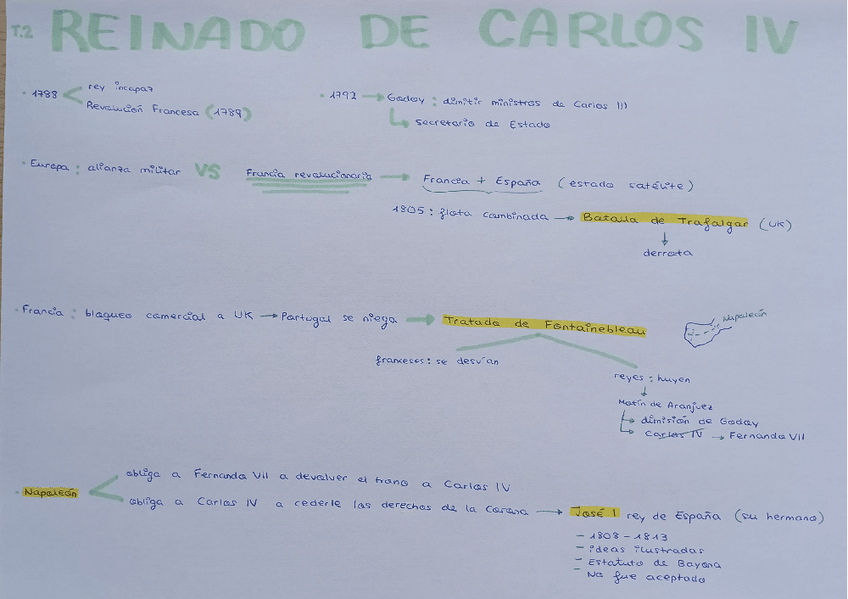 T.2 REINADO DE CARLOS IV
· 1788
rey incapaz
Revolución Francesa (1789)
· 1792 → Godoy : dimitir ministros de Carlos III
secretario de Estado
· Europa : alianza militar VS Francia revolucionaria → Francia + España (estado satélite)
1805 : flota combinada → Batalla de Trafalgar (UK)
derrota
· Francia : bloqueo comercial a UK → Portugal se niega → Tratado de Fontainebleau
Napoleón
franceses : se desvían
reyes : huyen
Motín de Aranjuez
dimisión de Godoy
Carlos IV → Fernando VII
· Napoleón
obliga a Fernando VII a devolver el trono a Carlos IV
obliga a Carlos IV a cederle los derechos de la Corona → José I rey de España (su hermano)
- 1808 - 1813
- ideas ilustradas
- Estatuto de Bayona
- No fue aceptado